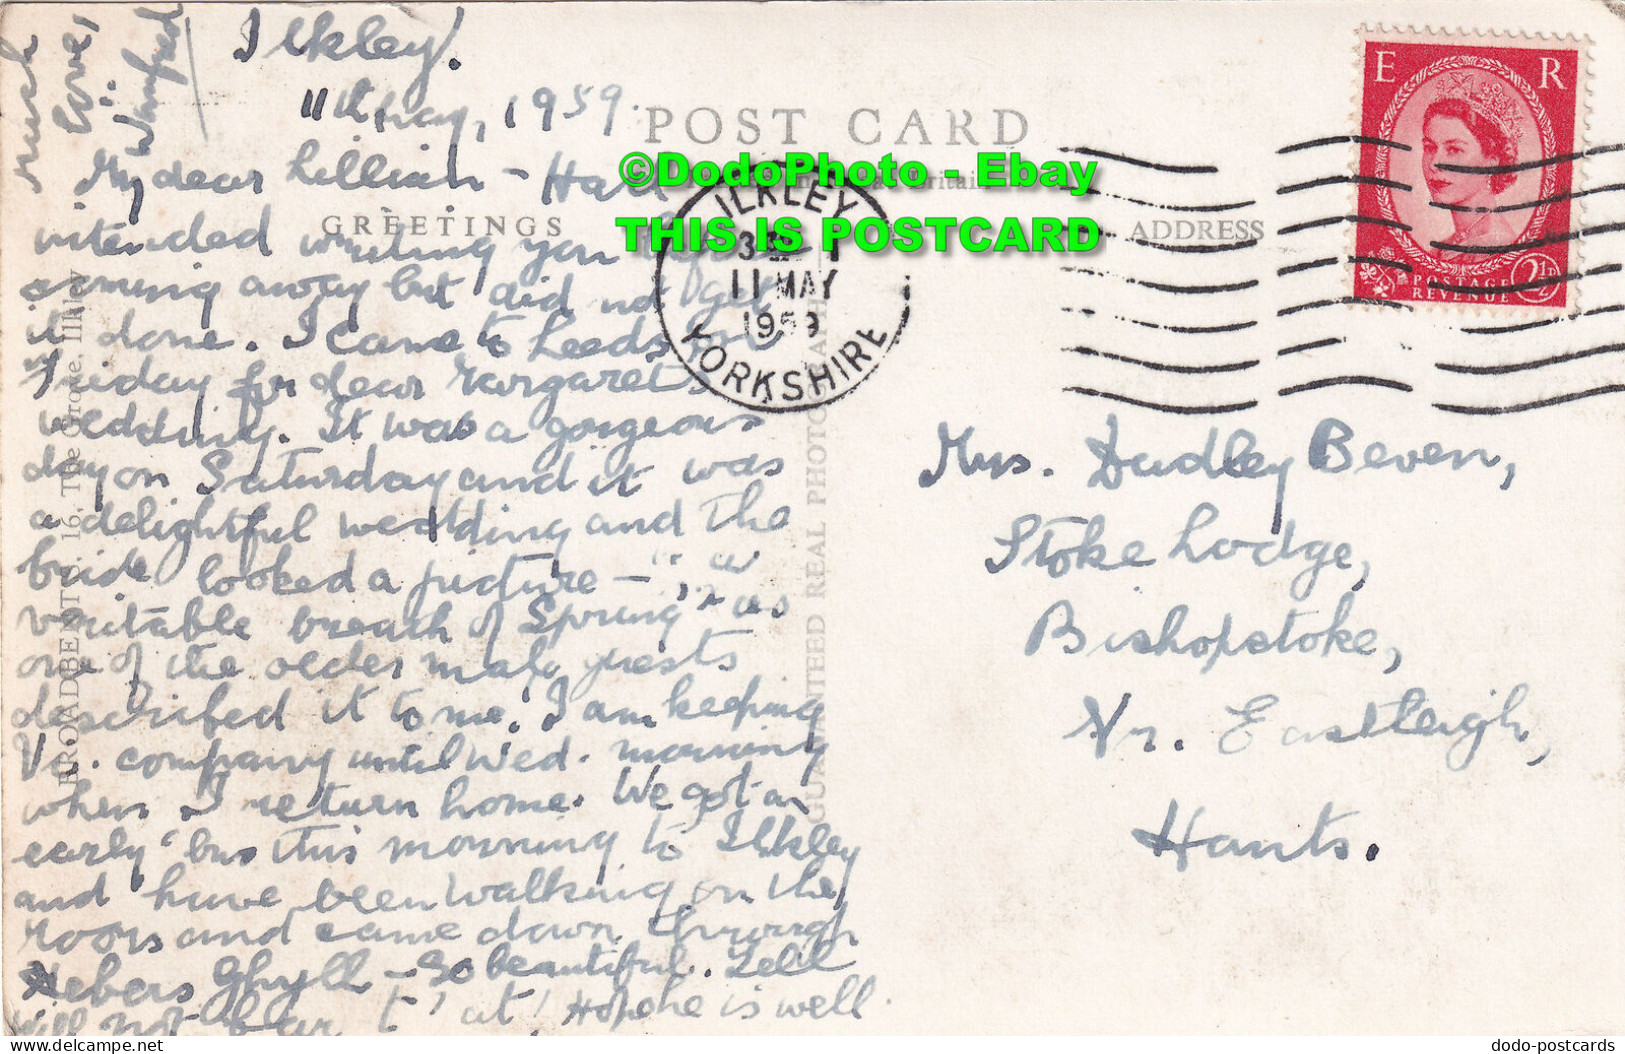 Ilkley.
11th May, 1959.
My dear Lillian - Had
intended writing you before
coming away but did not get
it done. I came to Leeds for
Friday for dear Margaret's
wedding. It was a gorgeous
day on Saturday and it was
a delightful wedding and the
bride looked a picture - "a
veritable breath of Spring" as
one of the older male guests
described it to me! I am keeping
company until Wed. morning
when I return home. We got an
early bus this morning to Ilkley
and have been walking on the
moors and came down through
Hebers Ghyll - so beautiful. Tell
will not hear 't' at! Hope he is well
much
love,
Winifred
POST CARD
GREETINGS
ADDRESS
BROADBENT 16, The Grove, Ilkley
GUARANTEED REAL PHOTOGRAPH
©DodoPhoto - Ebay
THIS IS POSTCARD
ILKLEY
11 MAY
1959
YORKSHIRE
E R
POSTAGE
REVENUE
2½D
Mrs. Dudley Beven,
Stoke Lodge,
Bishopstoke,
Nr. Eastleigh,
Hants.
dodo-postcards